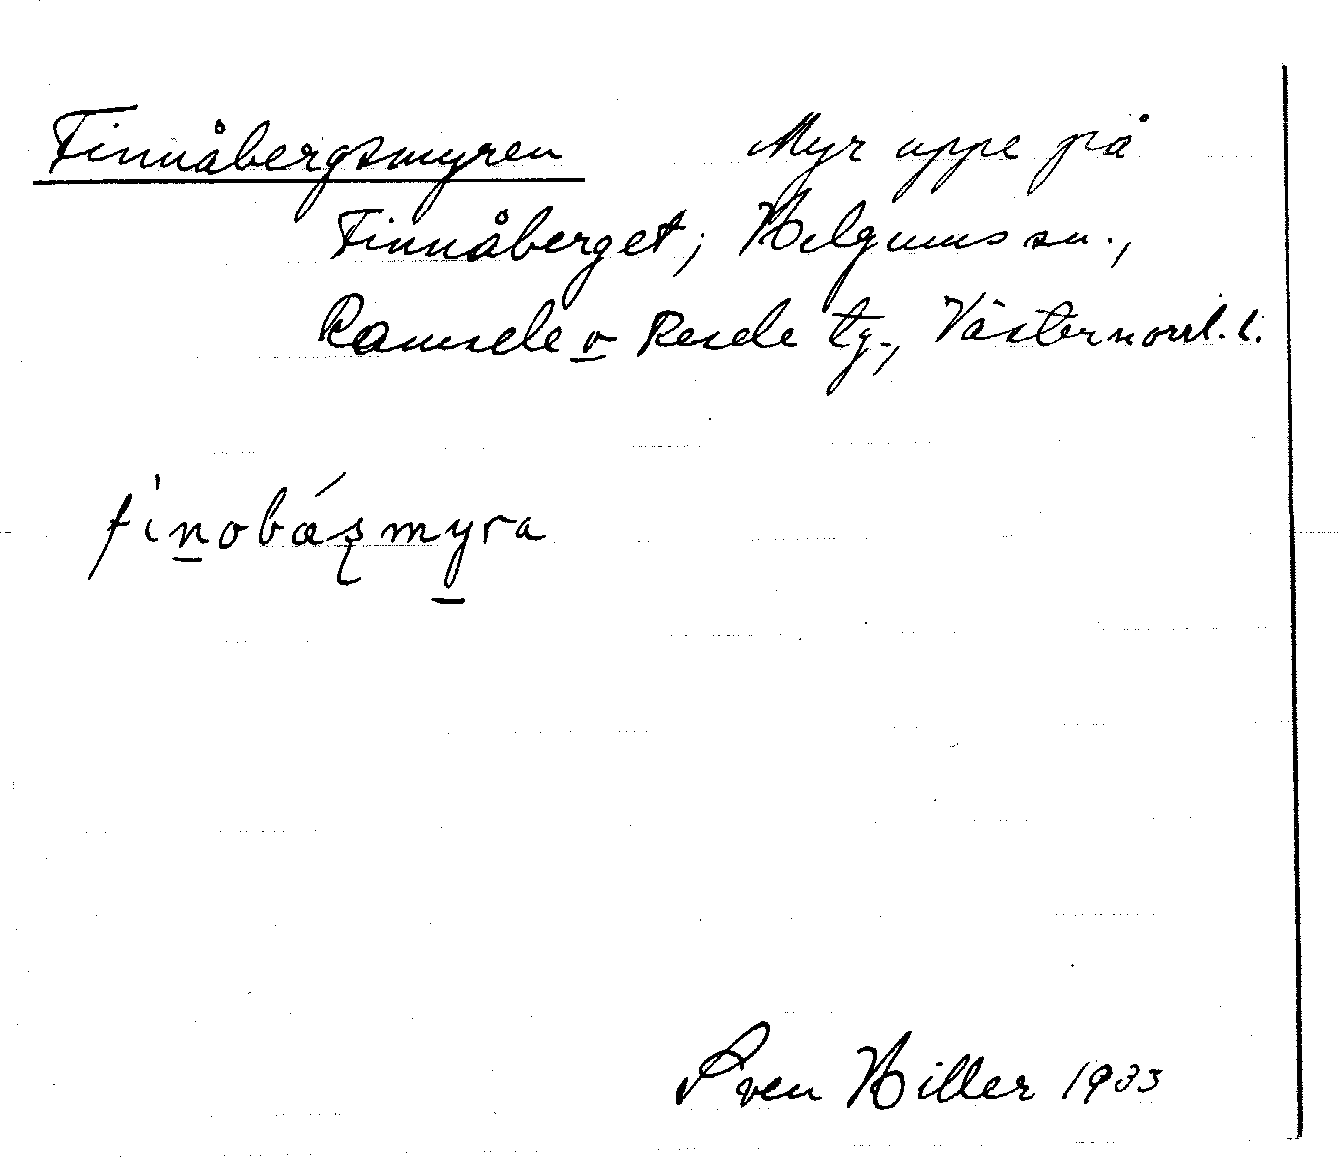 Finnåbergsmyren Myr uppe på
Finnåberget; Helgums sn.,
Ramsele o Resele tg., Västernorrl. l.
fìnobázmyra
Sven Hiller 1933